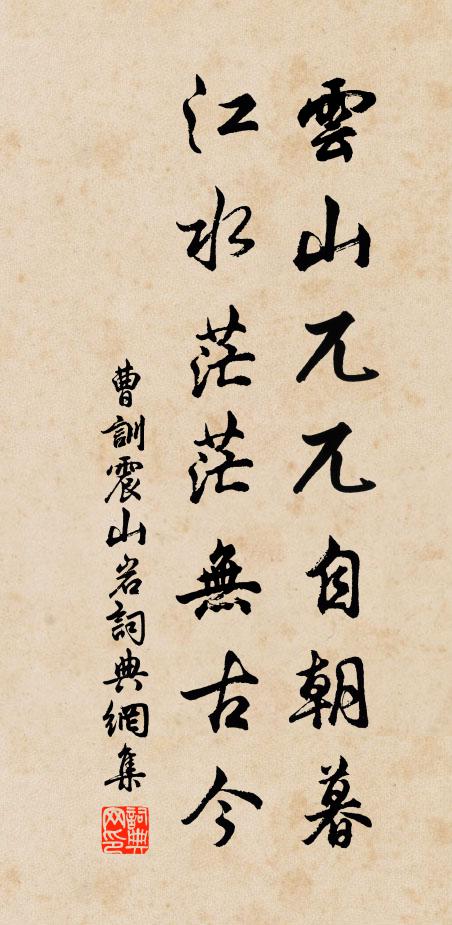 雲山兀兀自朝暮
江水茫茫無古今
曹訓震山岩詞典網集
詞典網印